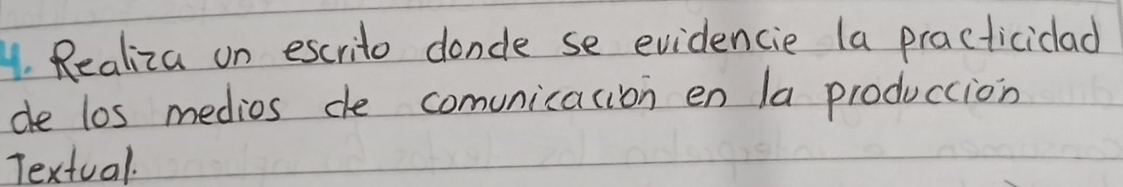 4. Realiza un escrito donde se evidencie la practicidad
de los medios de comunicación en la producción
Textual.